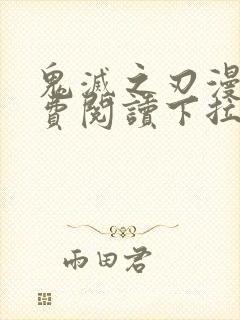 鬼滅之刃漫
費閱讀下拉
雨田君